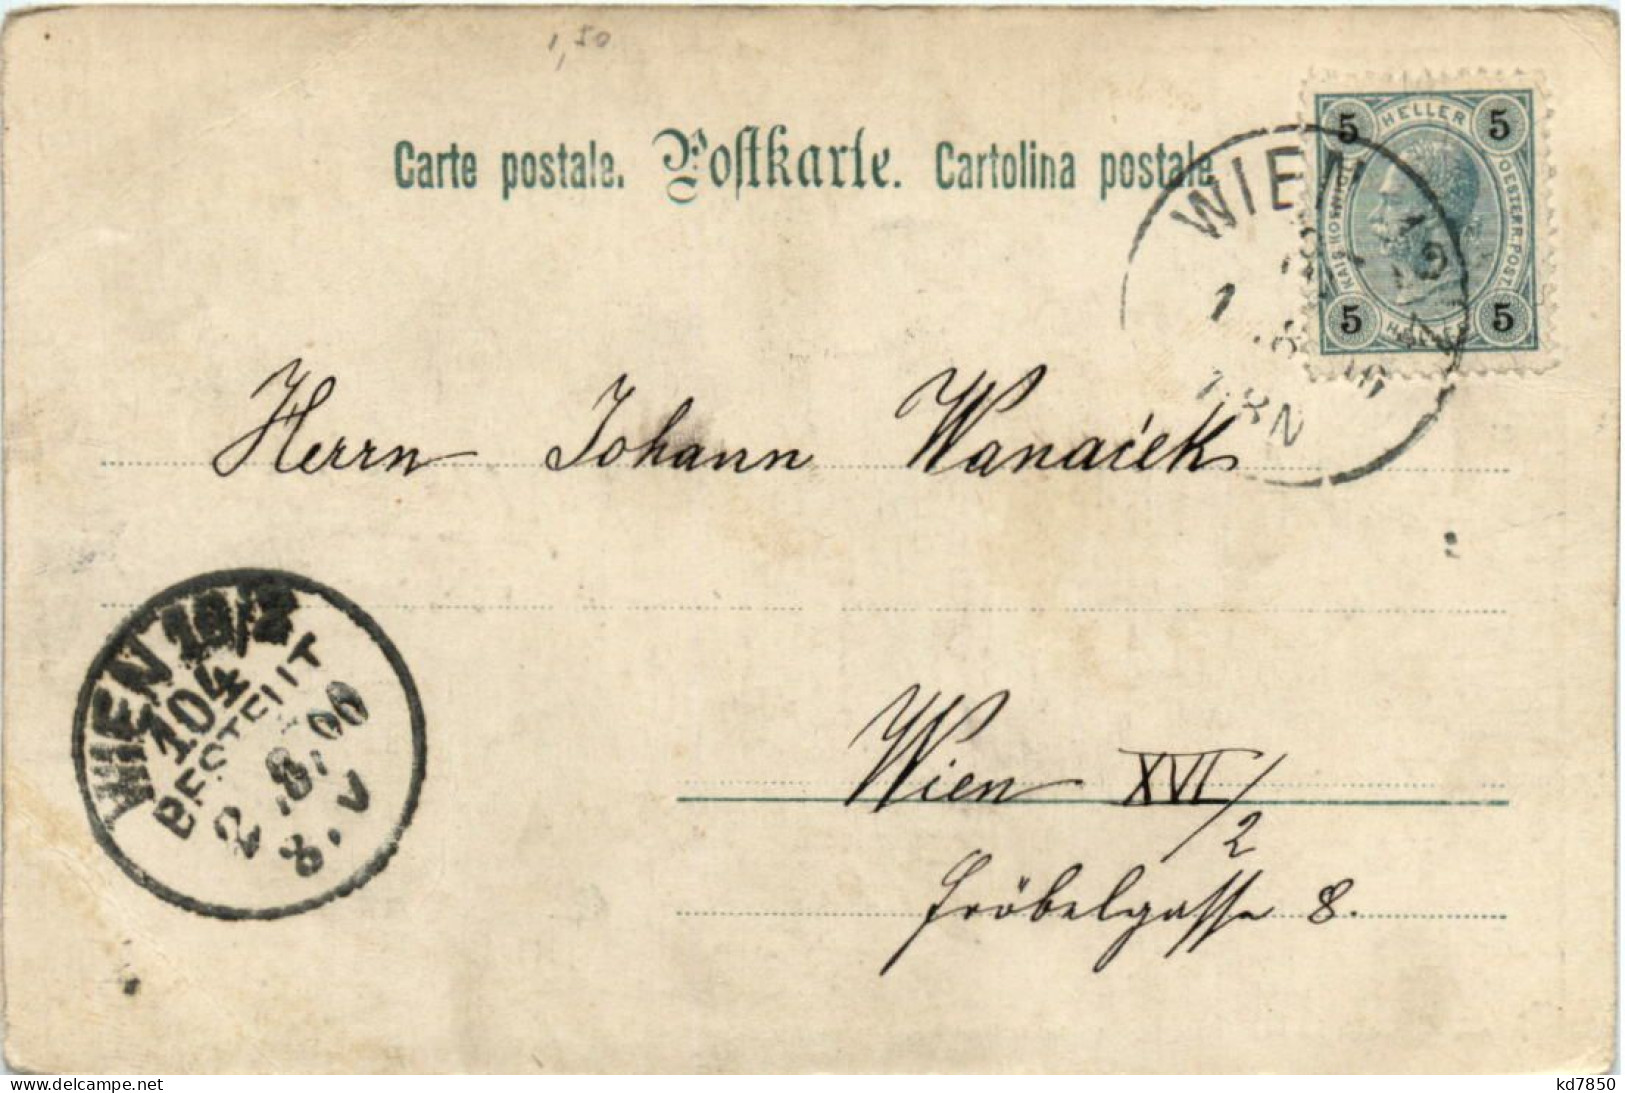 1,50
Carte postale. Postkarte. Cartolina postale
WIEN
HELLER
5 5
KAIS. KÖNIGL. OESTERR. POST
5 5
Herrn Johann Wanaček
WIEN
104
BESTELLT
2.8.00
8.V
Wien XVI/2
Fröbelgasse 8.
www.delcampe.net
kd7850